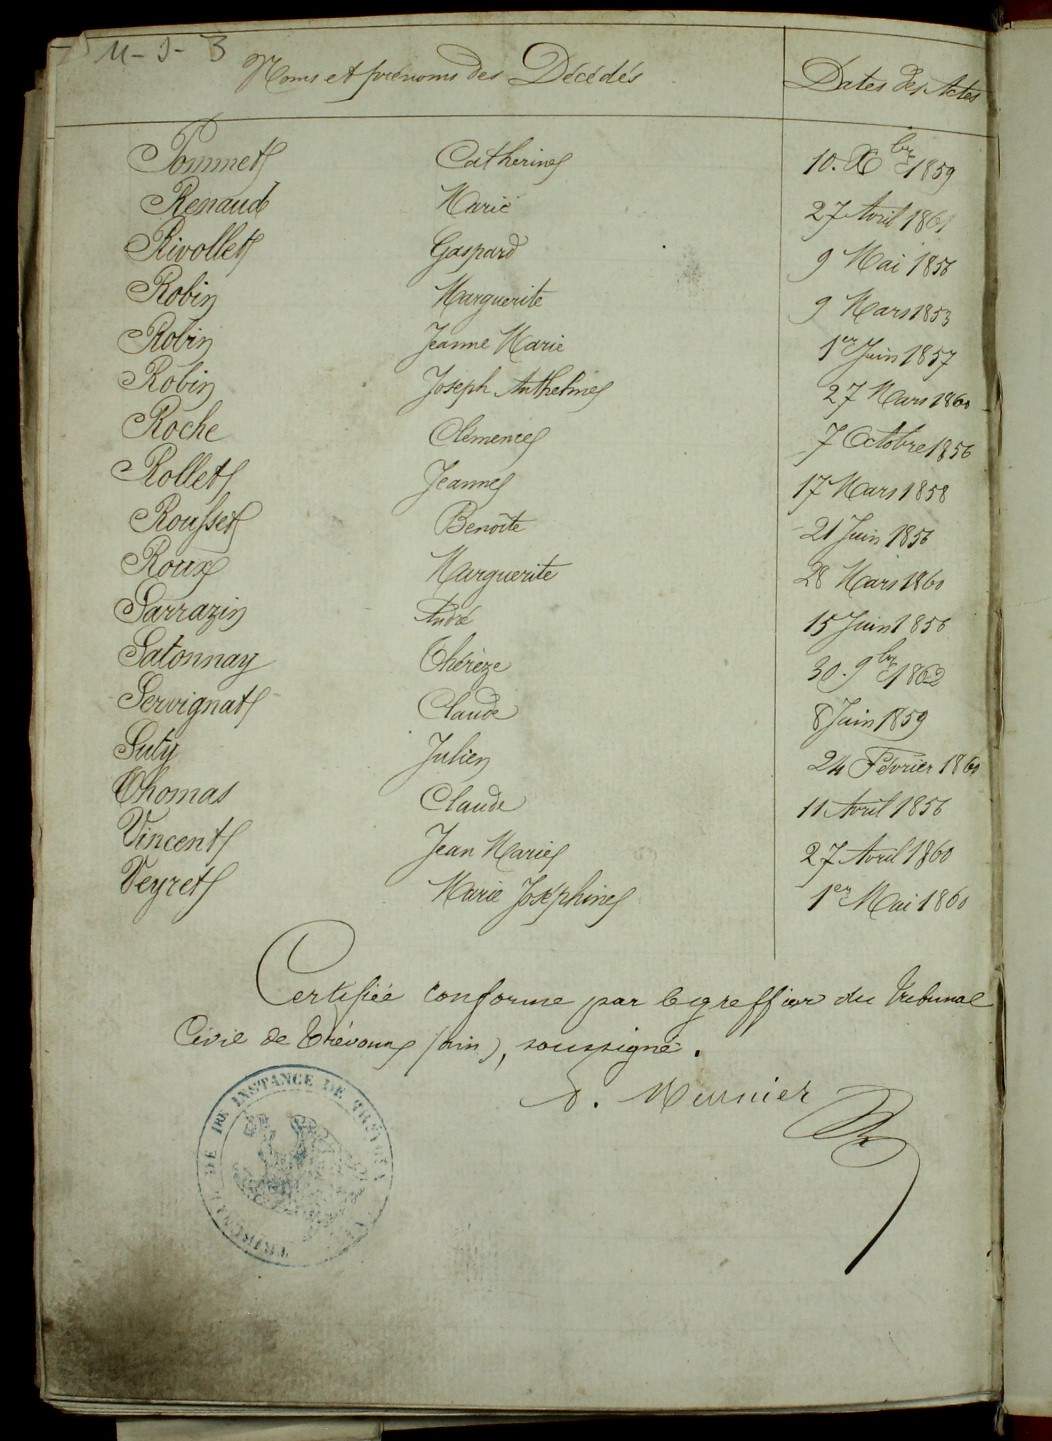 11-3-3
Noms et prénoms des Décédés Dates des Actes
Pommet Catherine 10. Xbre 1859
Renaud Marie 27 Avril 1861
Rivollet Gaspard 9 Mai 1856
Robin Marguerite 9 Mars 1853
Robin Jeanne Marie 1er Juin 1857
Robin Joseph Anthelme 27 Mars 1860
Roche Clémence 7 Octobre 1856
Rollet Jeanne 17 Mars 1858
Rousset Benoîte 21 Juin 1856
Roux Marguerite 28 Mars 1860
Sarrazin André 15 Juin 1856
Satonnay Thérèze 30. 9bre 1862
Servignat Claude 8 Juin 1859
Suty Julien 24 Février 1860
Thomas Claude 11 Avril 1856
Vincent Jean Marie 27 Avril 1860
Veyret Marie Joséphine 1er Mai 1860
Certifiée conforme par le greffier du Tribunal
Civil de Trévoux (Ain), soussigné.
Meunier
TRIBUNAL DE 1RE INSTANCE DE TRÉVOUX